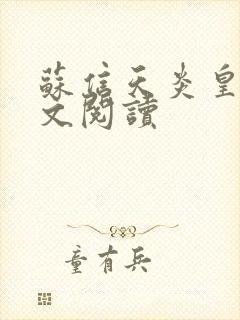 蘇信天炎皇
文閱讀
童有兵